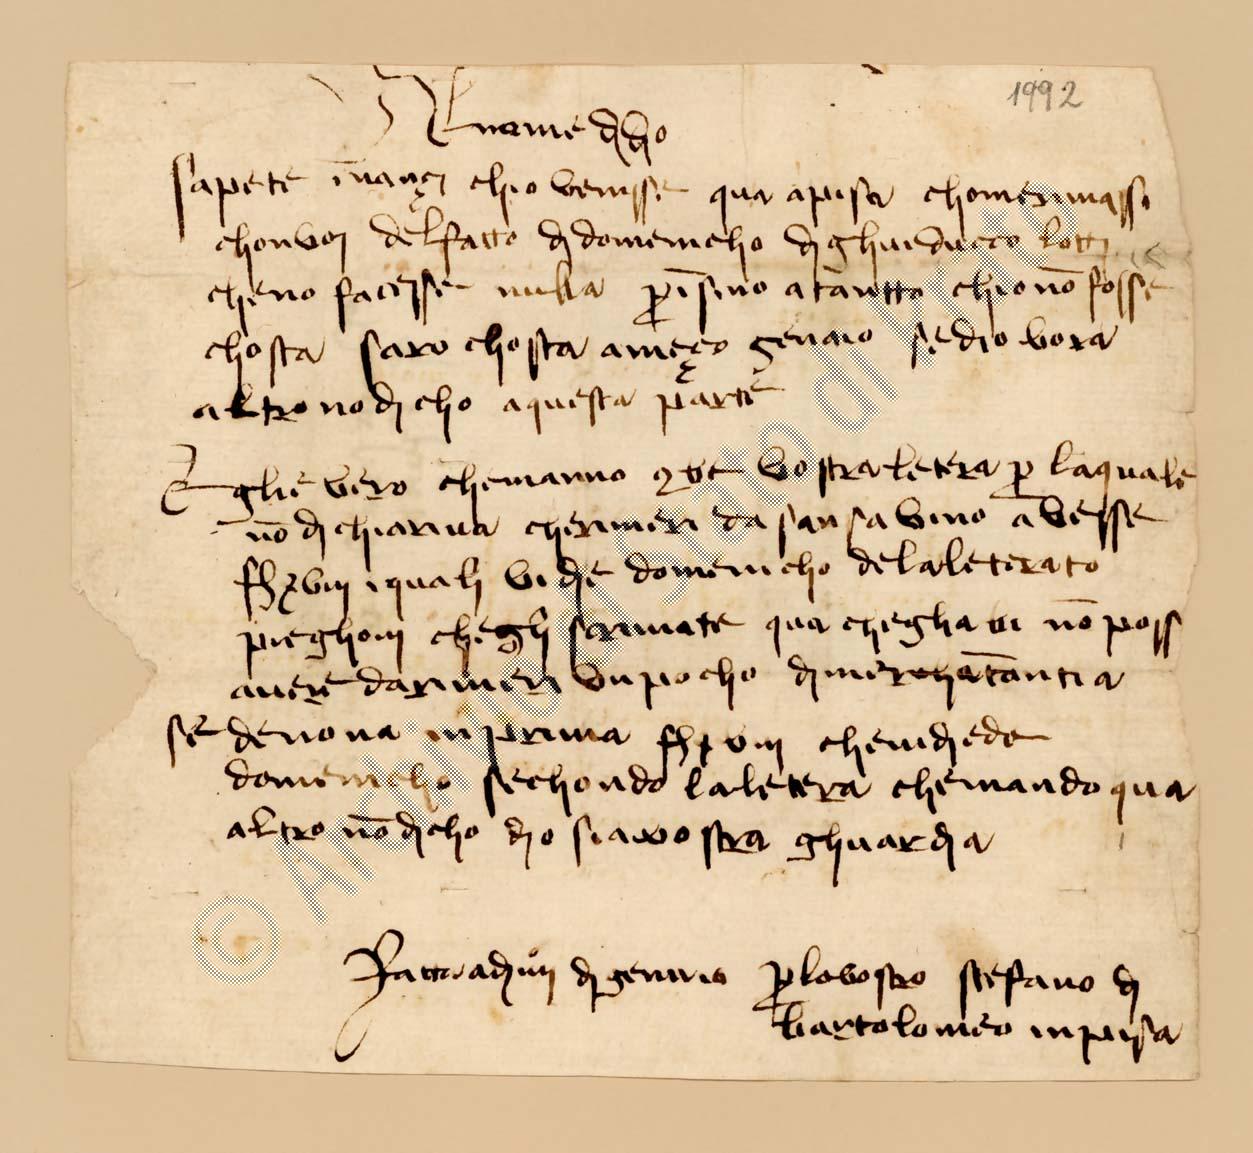 1992
Al nome di dio
sapete inançi chio venisse qua apisa chomerimassi
chonvoi delfatto di domenicho di ghuiduccio lotti
cheno facesse nulla per insino atantto chio non fosse
chosta saro chosta ameço gennaio se dio vora
altro no dicho aquesta parte
Egli e vero chemanno vostra letera per laquale
non dichiarava cherineri da san savino avesse
f xviiii iquali vi die domenicho delaleterato
pieghovi chegli scriviate qua chegha non poss
avere darineri unpocho di merchatantia
se de nova inprima f xviiii chevidiede
domenicho sechondo laletera chemando qua
altro non dicho dio sia vostra ghuardia
Fatta adi di gennaio per lo vostro stefano di
bartolomeo inpisa
© Archivio di Stato di Prato